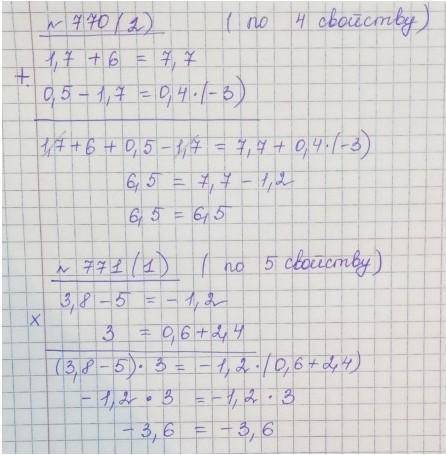 № 770(2) ( по 4 свойству)
1,7 + 6 = 7,7
+
0,5 - 1,7 = 0,4·(-3)
1,7 + 6 + 0,5 - 1,7 = 7,7 + 0,4·(-3)
6,5 = 7,7 - 1,2
6,5 = 6,5
№ 771(1) ( по 5 свойству)
3,8 - 5 = - 1,2
x
3 = 0,6 + 2,4
(3,8 - 5)· 3 = - 1,2 · (0,6 + 2,4)
- 1,2 · 3 = - 1,2 · 3
- 3,6 = - 3,6